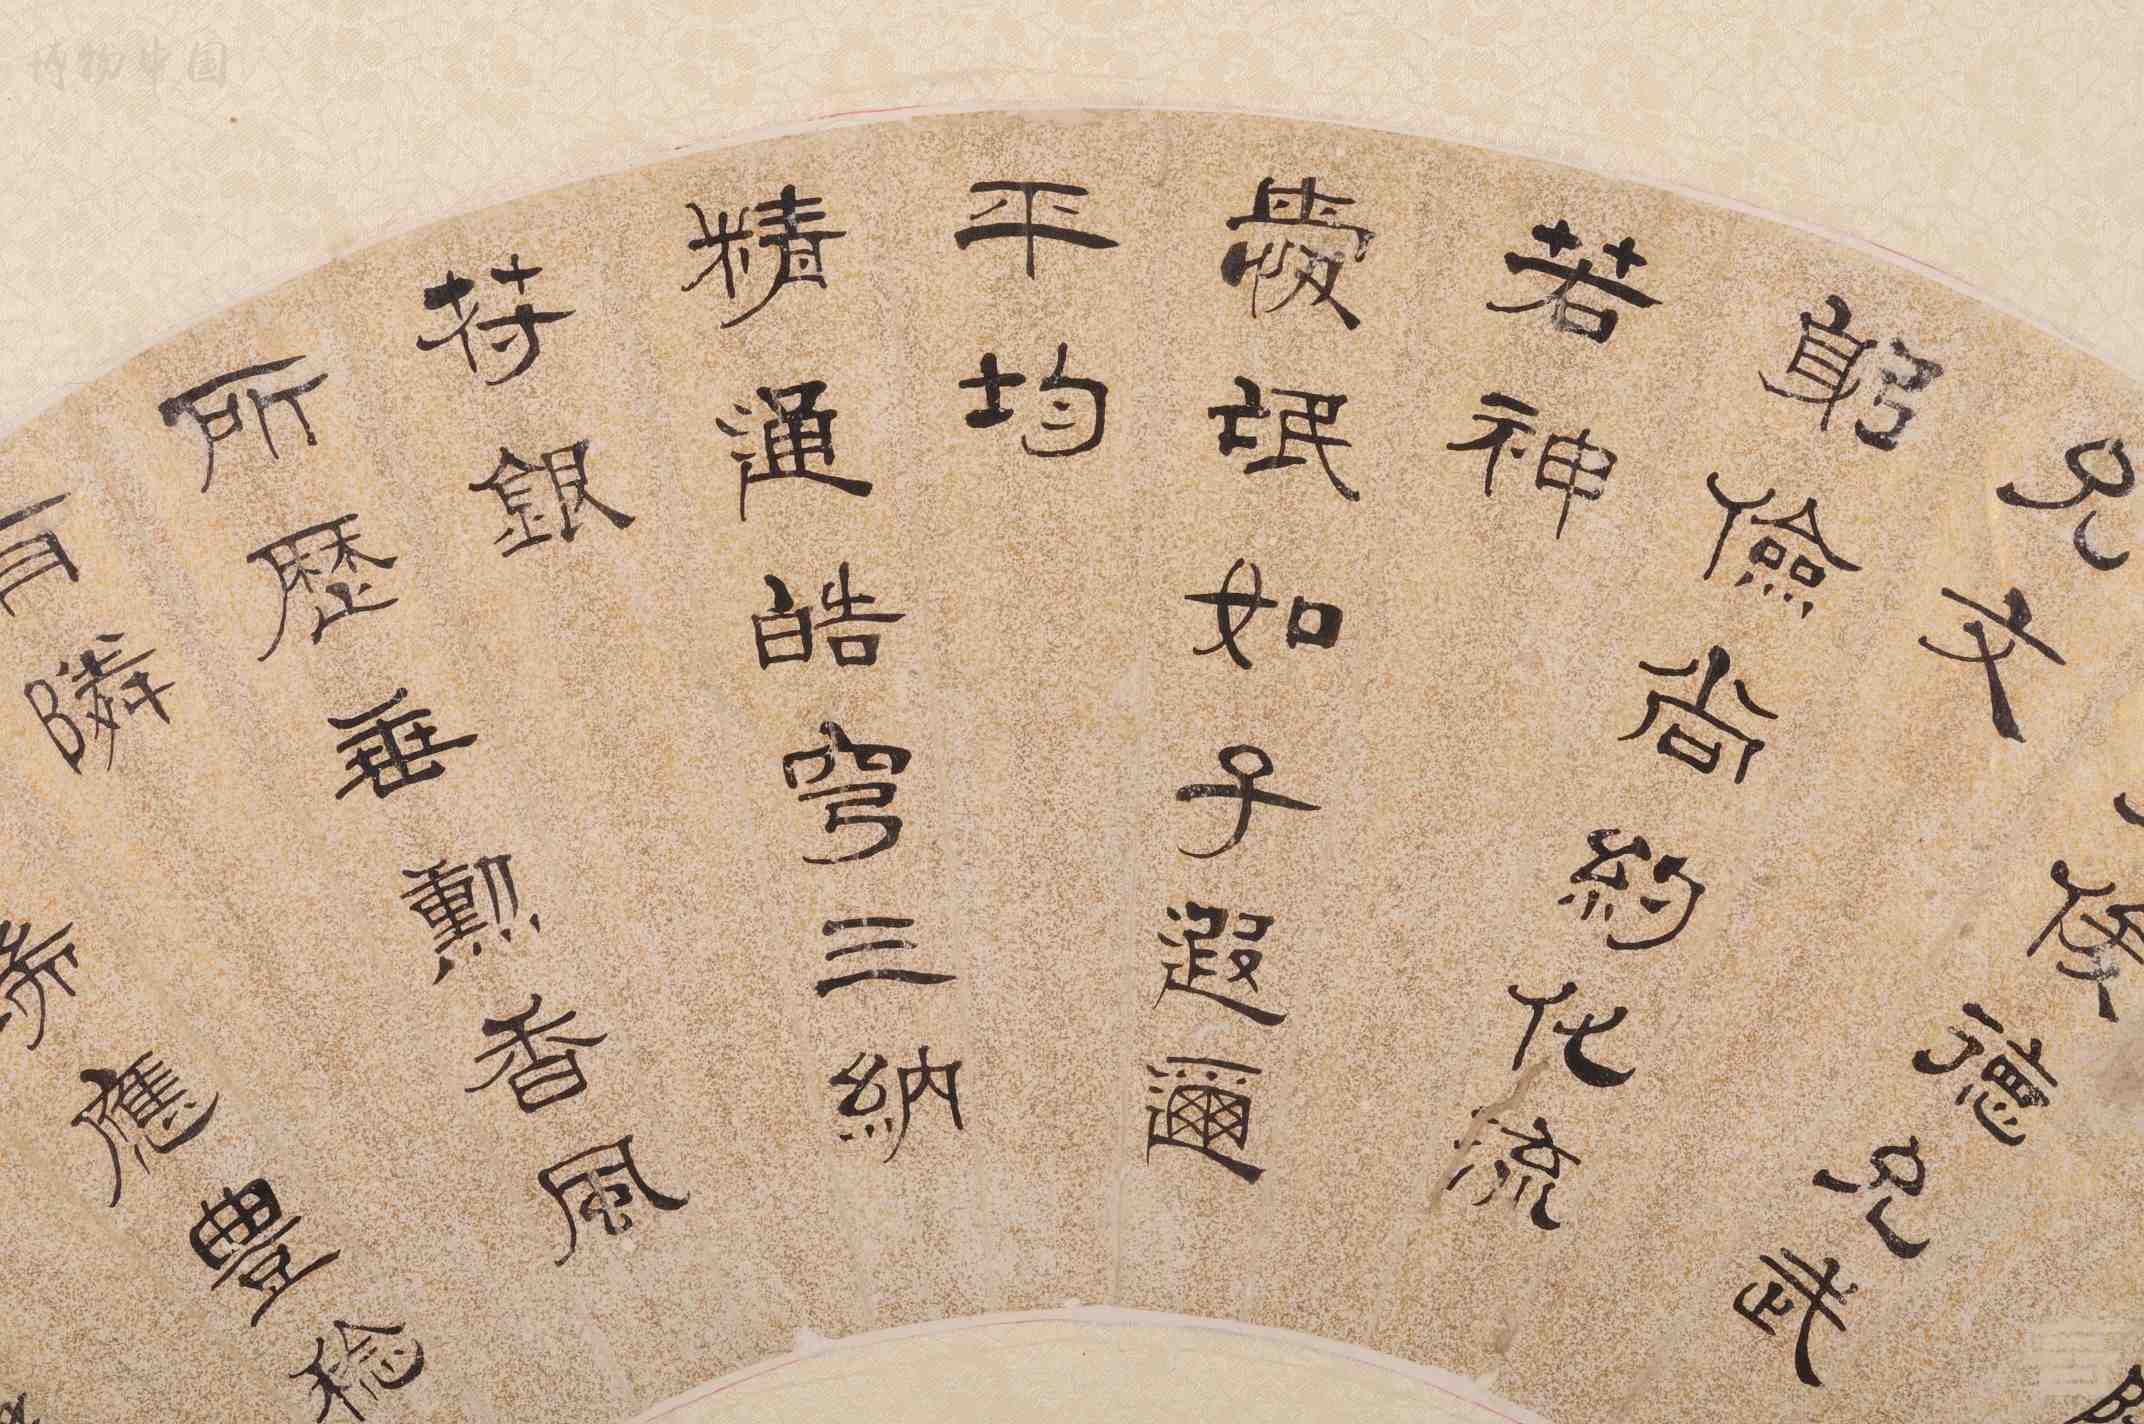 俊德允武
允文
躬儉尚約化流
若神
愛氓如子遐邇
平均
精通皓穹三納
苻銀
所歷垂勳香風
有隣
應豊稔
博物中国